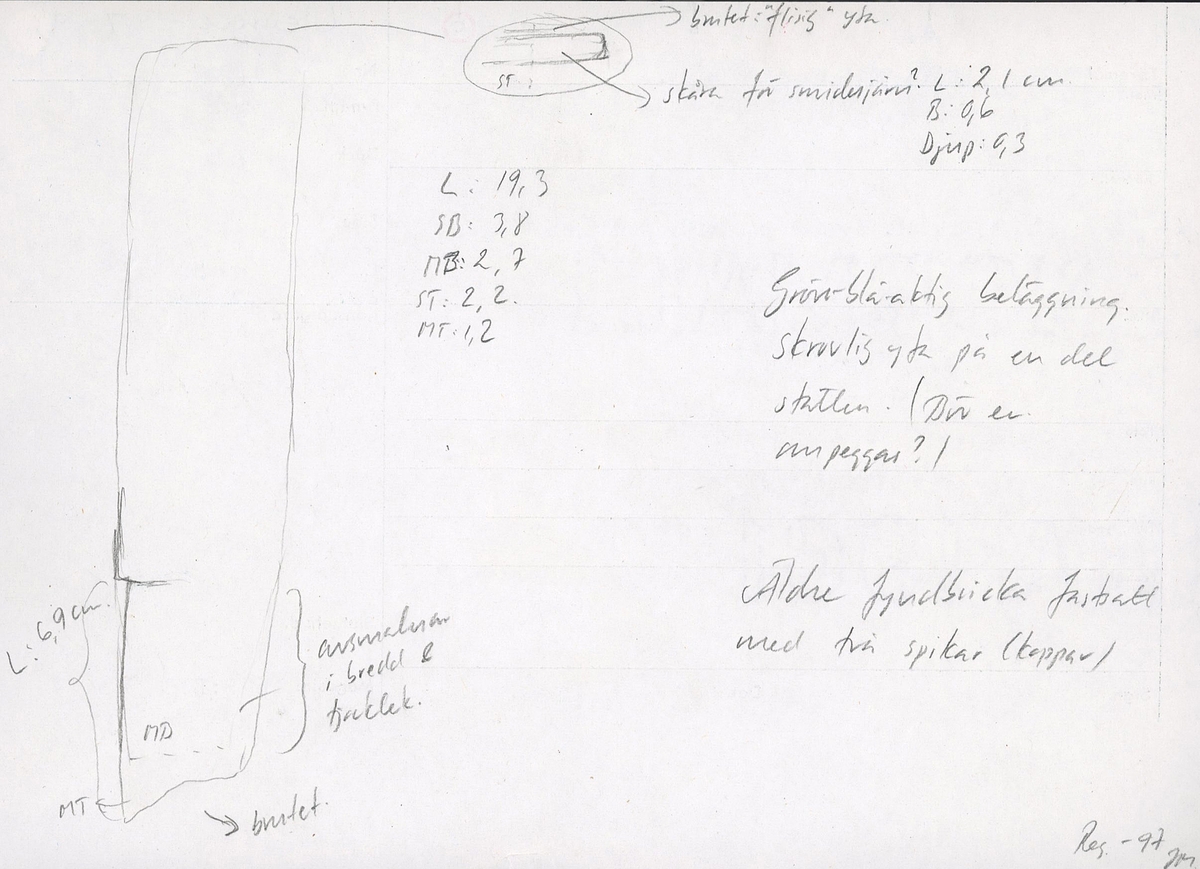 brutet: "flisig" yta.
ST:
skåra för smidesjärn? L: 2,1 cm.
B: 0,6
Djup: 0,3
L: 19,3
SB: 3,8
MB: 2,7
ST: 2,2.
MT: 1,2
Grön-blå-aktig beläggning.
skrovlig yta på en del
ställen. (Bör en
ompeggas?)
Äldre fyndbricka fastsatt
med två spikar (koppar)
L: 6,9 cm.
avsmalnar
i bredd &
tjocklek.
MB
MT
brutet.
Reg. -97